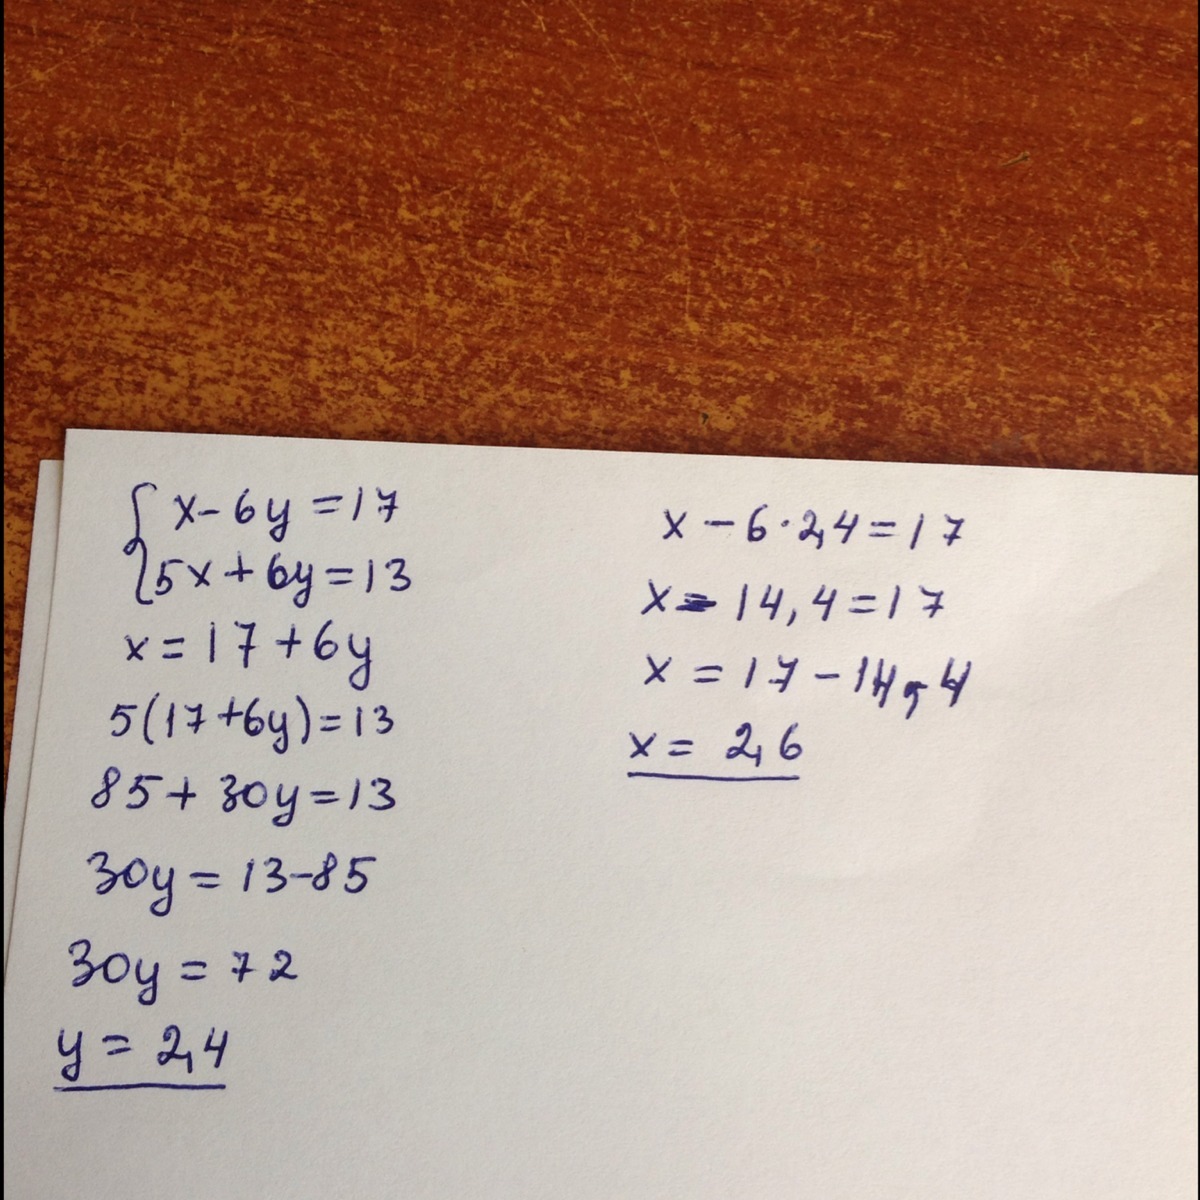 { x - 6y = 17
5x + 6y = 13
x = 17 + 6y
5(17 + 6y) = 13
85 + 30y = 13
30y = 13 - 85
30y = 72
y = 2,4
x - 6 · 2,4 = 17
x - 14,4 = 17
x = 17 - 14,4
x = 2,6